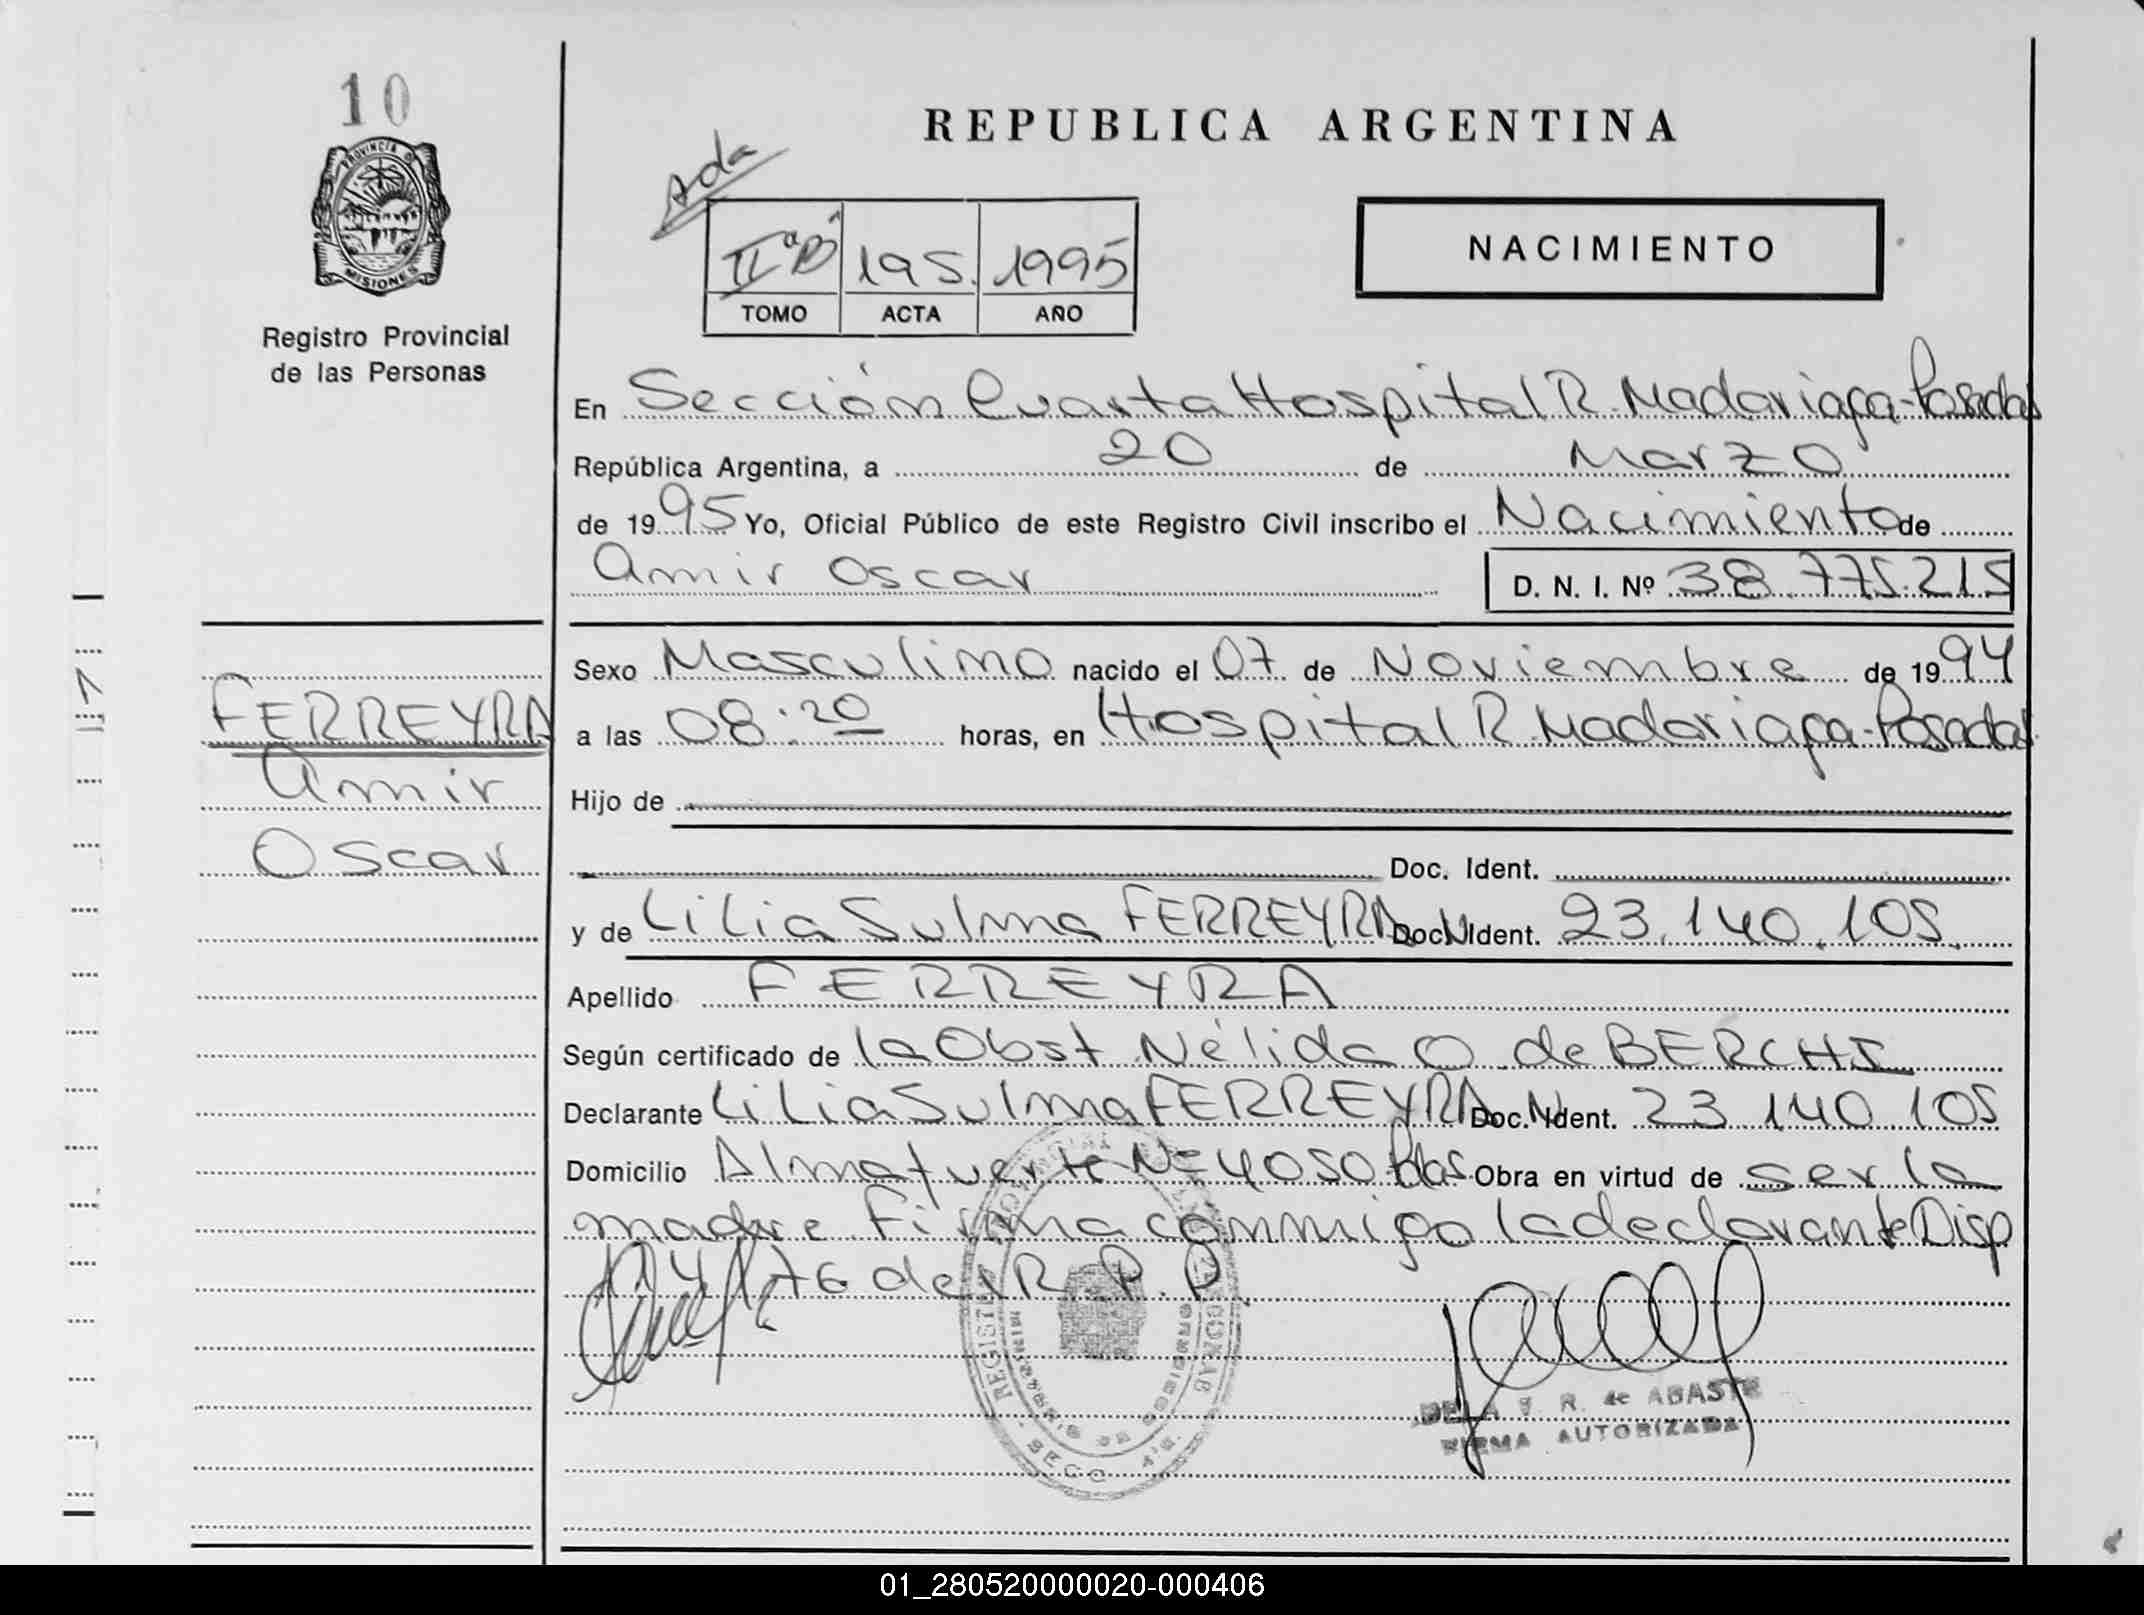 10
PROVINCIA D
MISIONES
Registro Provincial
de las Personas
FERREYRA
Amir
Oscar
REPUBLICA ARGENTINA
Ada
IIª B 195. 1995
TOMO ACTA AÑO
NACIMIENTO
En Sección Cuarta Hospital R. Madariaga-Posadas
República Argentina, a 20 de Marzo
de 1995 Yo, Oficial Público de este Registro Civil inscribo el Nacimiento de
Amir Oscar D. N. I. Nº 38.775.215
Sexo Masculino nacido el 07 de Noviembre de 1994
a las 08:20 horas, en Hospital R. Madariaga-Posadas
Hijo de
Doc. Ident.
y de Lilia Sulma FERREYRA DNI Doc. Ident. 23.140.105.
Apellido FERREYRA
Según certificado de la Obst. Nélida O. de BERCHI
Declarante Lilia Sulma FERREYRA DNI Doc. Ident. 23.140.105
Domicilio Almafuerte Nº 4050 Pdas. Obra en virtud de ser la
madre. Firma conmigo la declarante Disp
76 del R. P. P.
R. de ABASTE
FIRMA AUTORIZADA
01_280520000020-000406